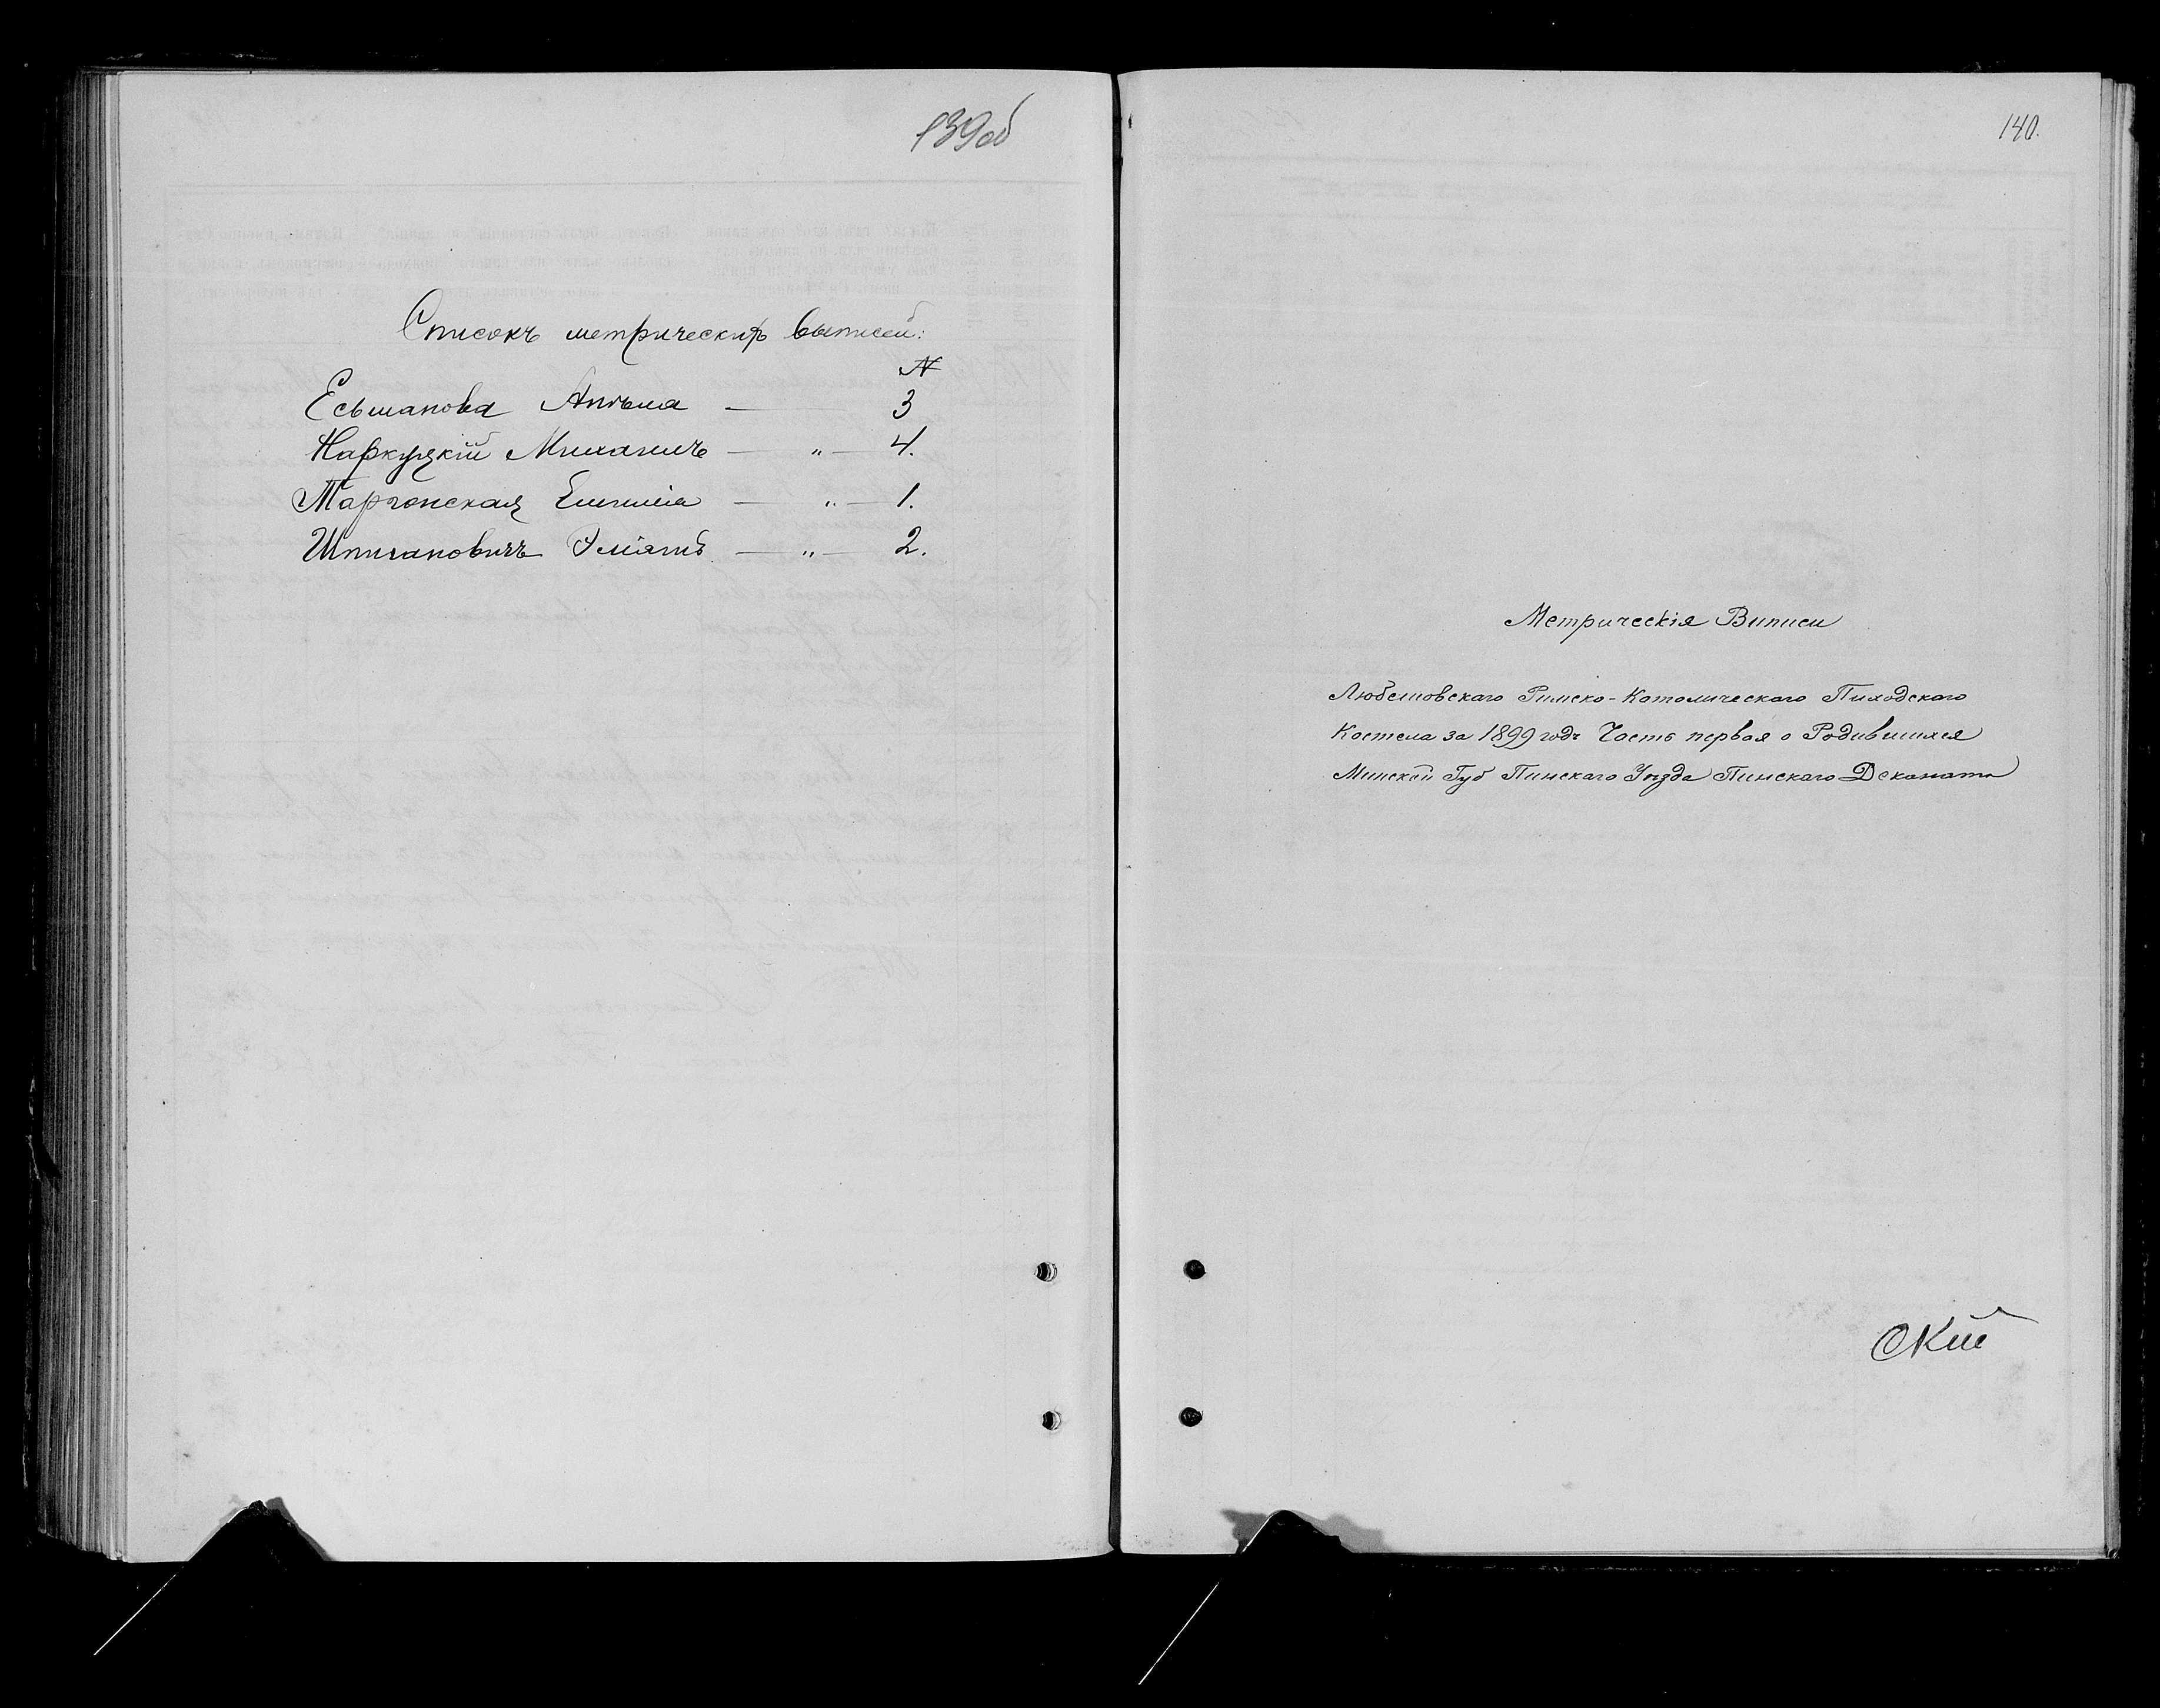 139об
Списокъ метрическихъ выписей:
N
Есьманова Антъна — 3
Наркуцкій Михаилъ — " — 4.
Маргонская Емилія — " — 1.
Шпигановичъ — " — 2.
140.
Метрическія Виписи
Любешовскаго Римско-Католическаго Пиходскаго
Костела за 1899 годъ Часть первая о Родившихся
Минской Губ Пинскаго Уѣзда Пинскаго Деканата